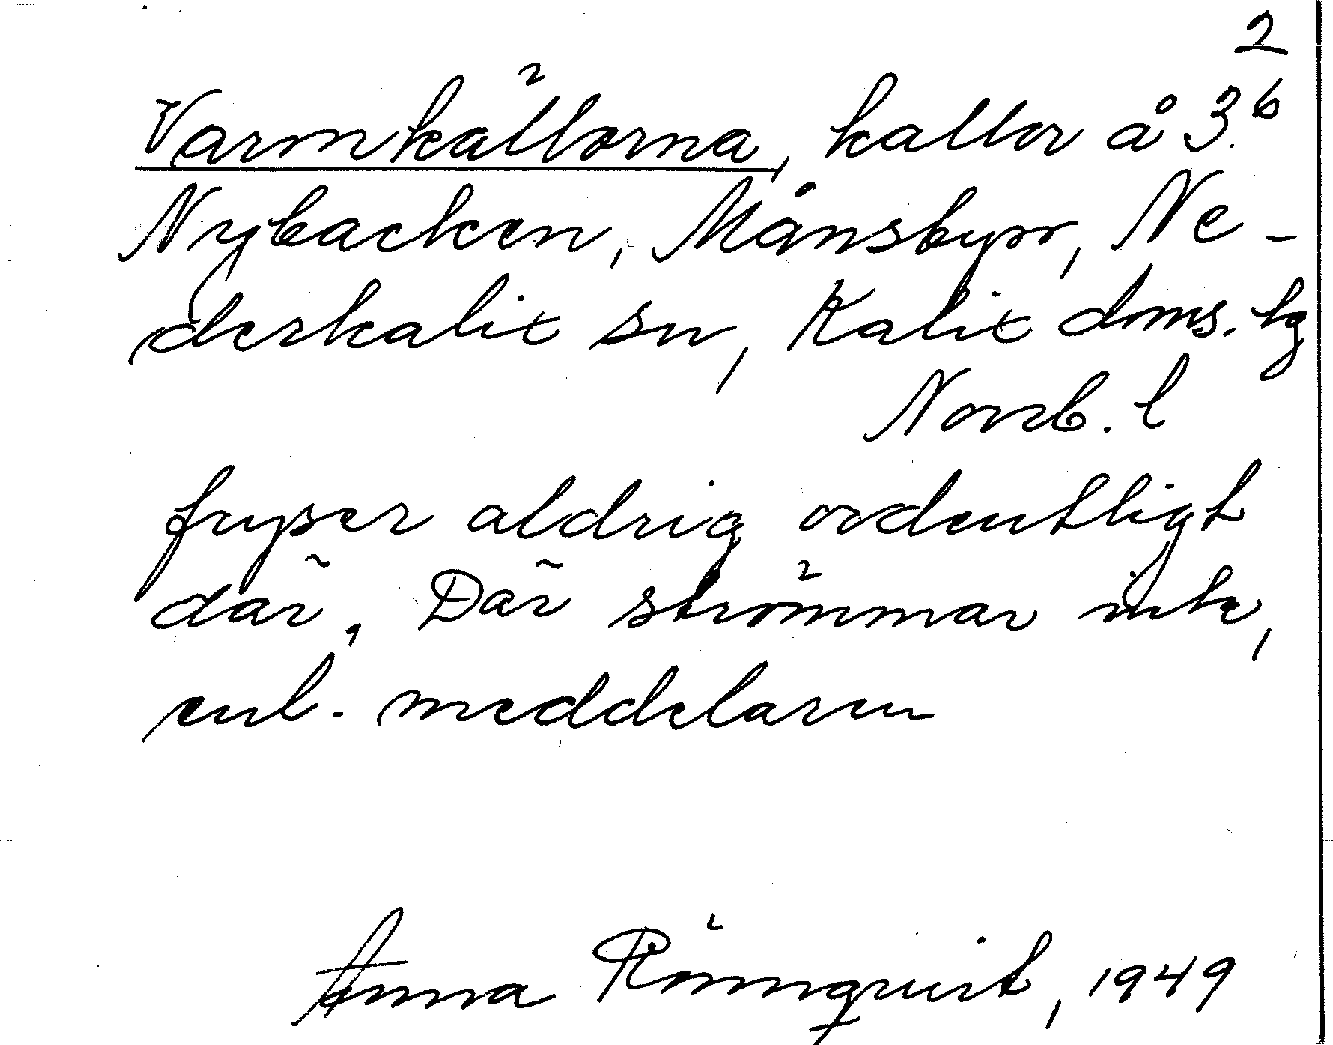 2
Varmkällorna, kallor å 3.6
Nybacken, Månsbyn, Ne-
derkalix sn, Kalix doms. lg
Norrb. l
fryser aldrig ordentligt
där. Där strömmar inte,
enl. meddelaren
Anna Rönnqvist, 1949